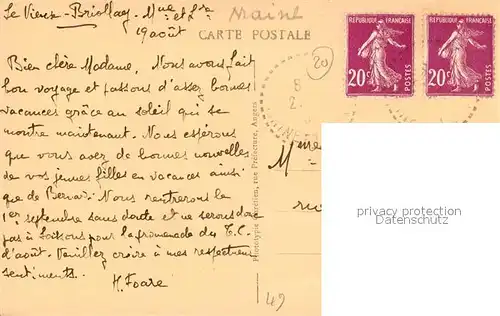 Le Vieux-Briollay - Mne et Lre
19 août
Maine
CARTE POSTALE
20
RÉPUBLIQUE FRANÇAISE
20c POSTES
RÉPUBLIQUE FRANÇAISE
20c POSTES
Bien chère Madame, Nous avons fait
bon voyage et passons d'assez bonnes
vacances grâce au soleil qui se
montre maintenant. Nous espérons
que vous avez de bonnes nouvelles
de vos jeunes filles en vacances ainsi
que de Bernard. Nous rentrerons le
1er septembre sans doute et ne serons donc
pas à Soissons pour la promenade du T.C.
d'août. Veuillez croire à mes respectueux
sentiments.
H. Foare
Phototypie Chrétien, rue Préfecture, Angers
49
privacy protection
Datenschutz